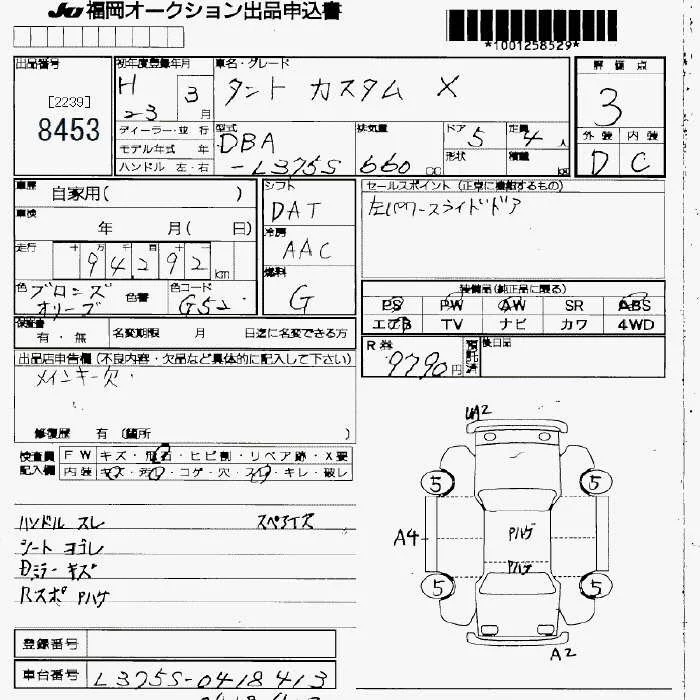 JU 福岡オークション出品申込書
*1001258529*
出品番号 初年度登録年月 車名・グレード 評価点
[2239]
8453
H 23 3月 タント カスタム X 3
ディーラー・並行 型式 排気量 ドア 定員 外装 内装
モデル年式 年 DBA 5 4人 D C
ハンドル 左・右 -L375S 660 cc 形状 積量 kg
車歴 自家用( ) シフト セールスポイント (正常に機能するもの)
DAT 左パワースライドドア
車検 年 月( 日) 冷房
AAC
走行 十 万 千 百 十
94292 km 燃料
G
色 ブロンズオリーブ 色替 色コード G52 装備品(純正品に限る)
PS PW AW SR ABS
エアB TV ナビ カワ 4WD
保証書 有・無 名変期限 月 日迄に名変できる方
R券 9790円 預託済 後日品
出品店申告欄 (不良内容・欠品など具体的に記入して下さい)
メインキー欠.
修復歴 有 (箇所 )
検査員記入欄 FW キズ・飛石・ヒビ割・リペア跡・X要
内装 キズ・汚れ・コゲ・穴・スレ・キレ・破レ
UA2
5 5
ハンドル スレ スペアタイヤ
A4 Pハゲ
シート ヨゴレ
Pハゲ
Dミラー キズ
5 5
Rスポ Pハゲ
A2
登録番号
車台番号 L375S-0418413